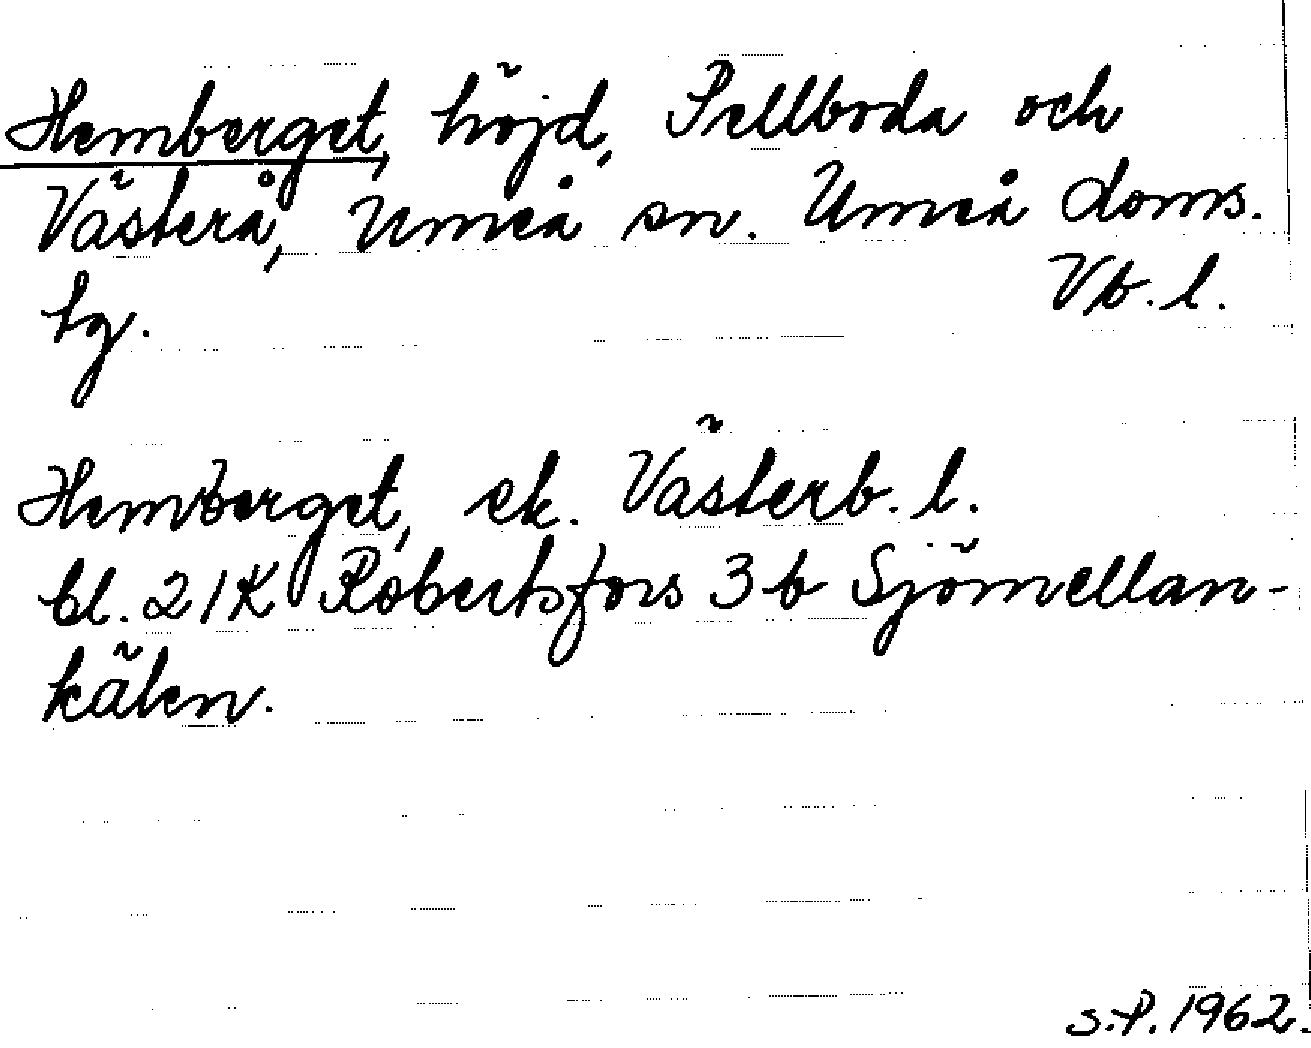 Hemberget, höjd, Pellboda och
Västerå, Umeå sn. Umeå doms.
tg. Vb. l.
Hemberget, ek. Västerb. l.
bl. 21K Robertsfors 3b Sjömellan-
kälen.
S.P. 1962.